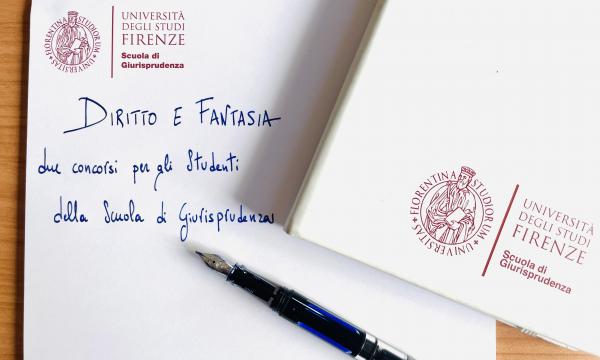 FLORENTINA STUDIORUM UNIVERSITAS
UNIVERSITÀ
DEGLI STUDI
FIRENZE
Scuola di
Giurisprudenza
DIRITTO E FANTASIA
due concorsi per gli Studenti
della Scuola di Giurisprudenza
FLORENTINA STUDIORUM UNIVERSITAS
UNIVERSITÀ
DEGLI STUDI
FIRENZE
Scuola di
Giurisprudenza